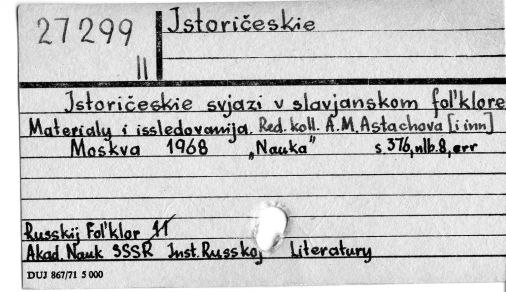 27299 Istoričeskie
II
Istoričeskie svjazi v slavjanskom fol'klore
Materialy i issledovanija. Red. koll. A.M. Astachova [i inn]
Moskva 1968 „Nauka" s. 376, nlb. 8, err
Russkij Fol'klor 11
Akad. Nauk SSSR Inst. Russkoj Literatury
DUJ 867/71 5 000